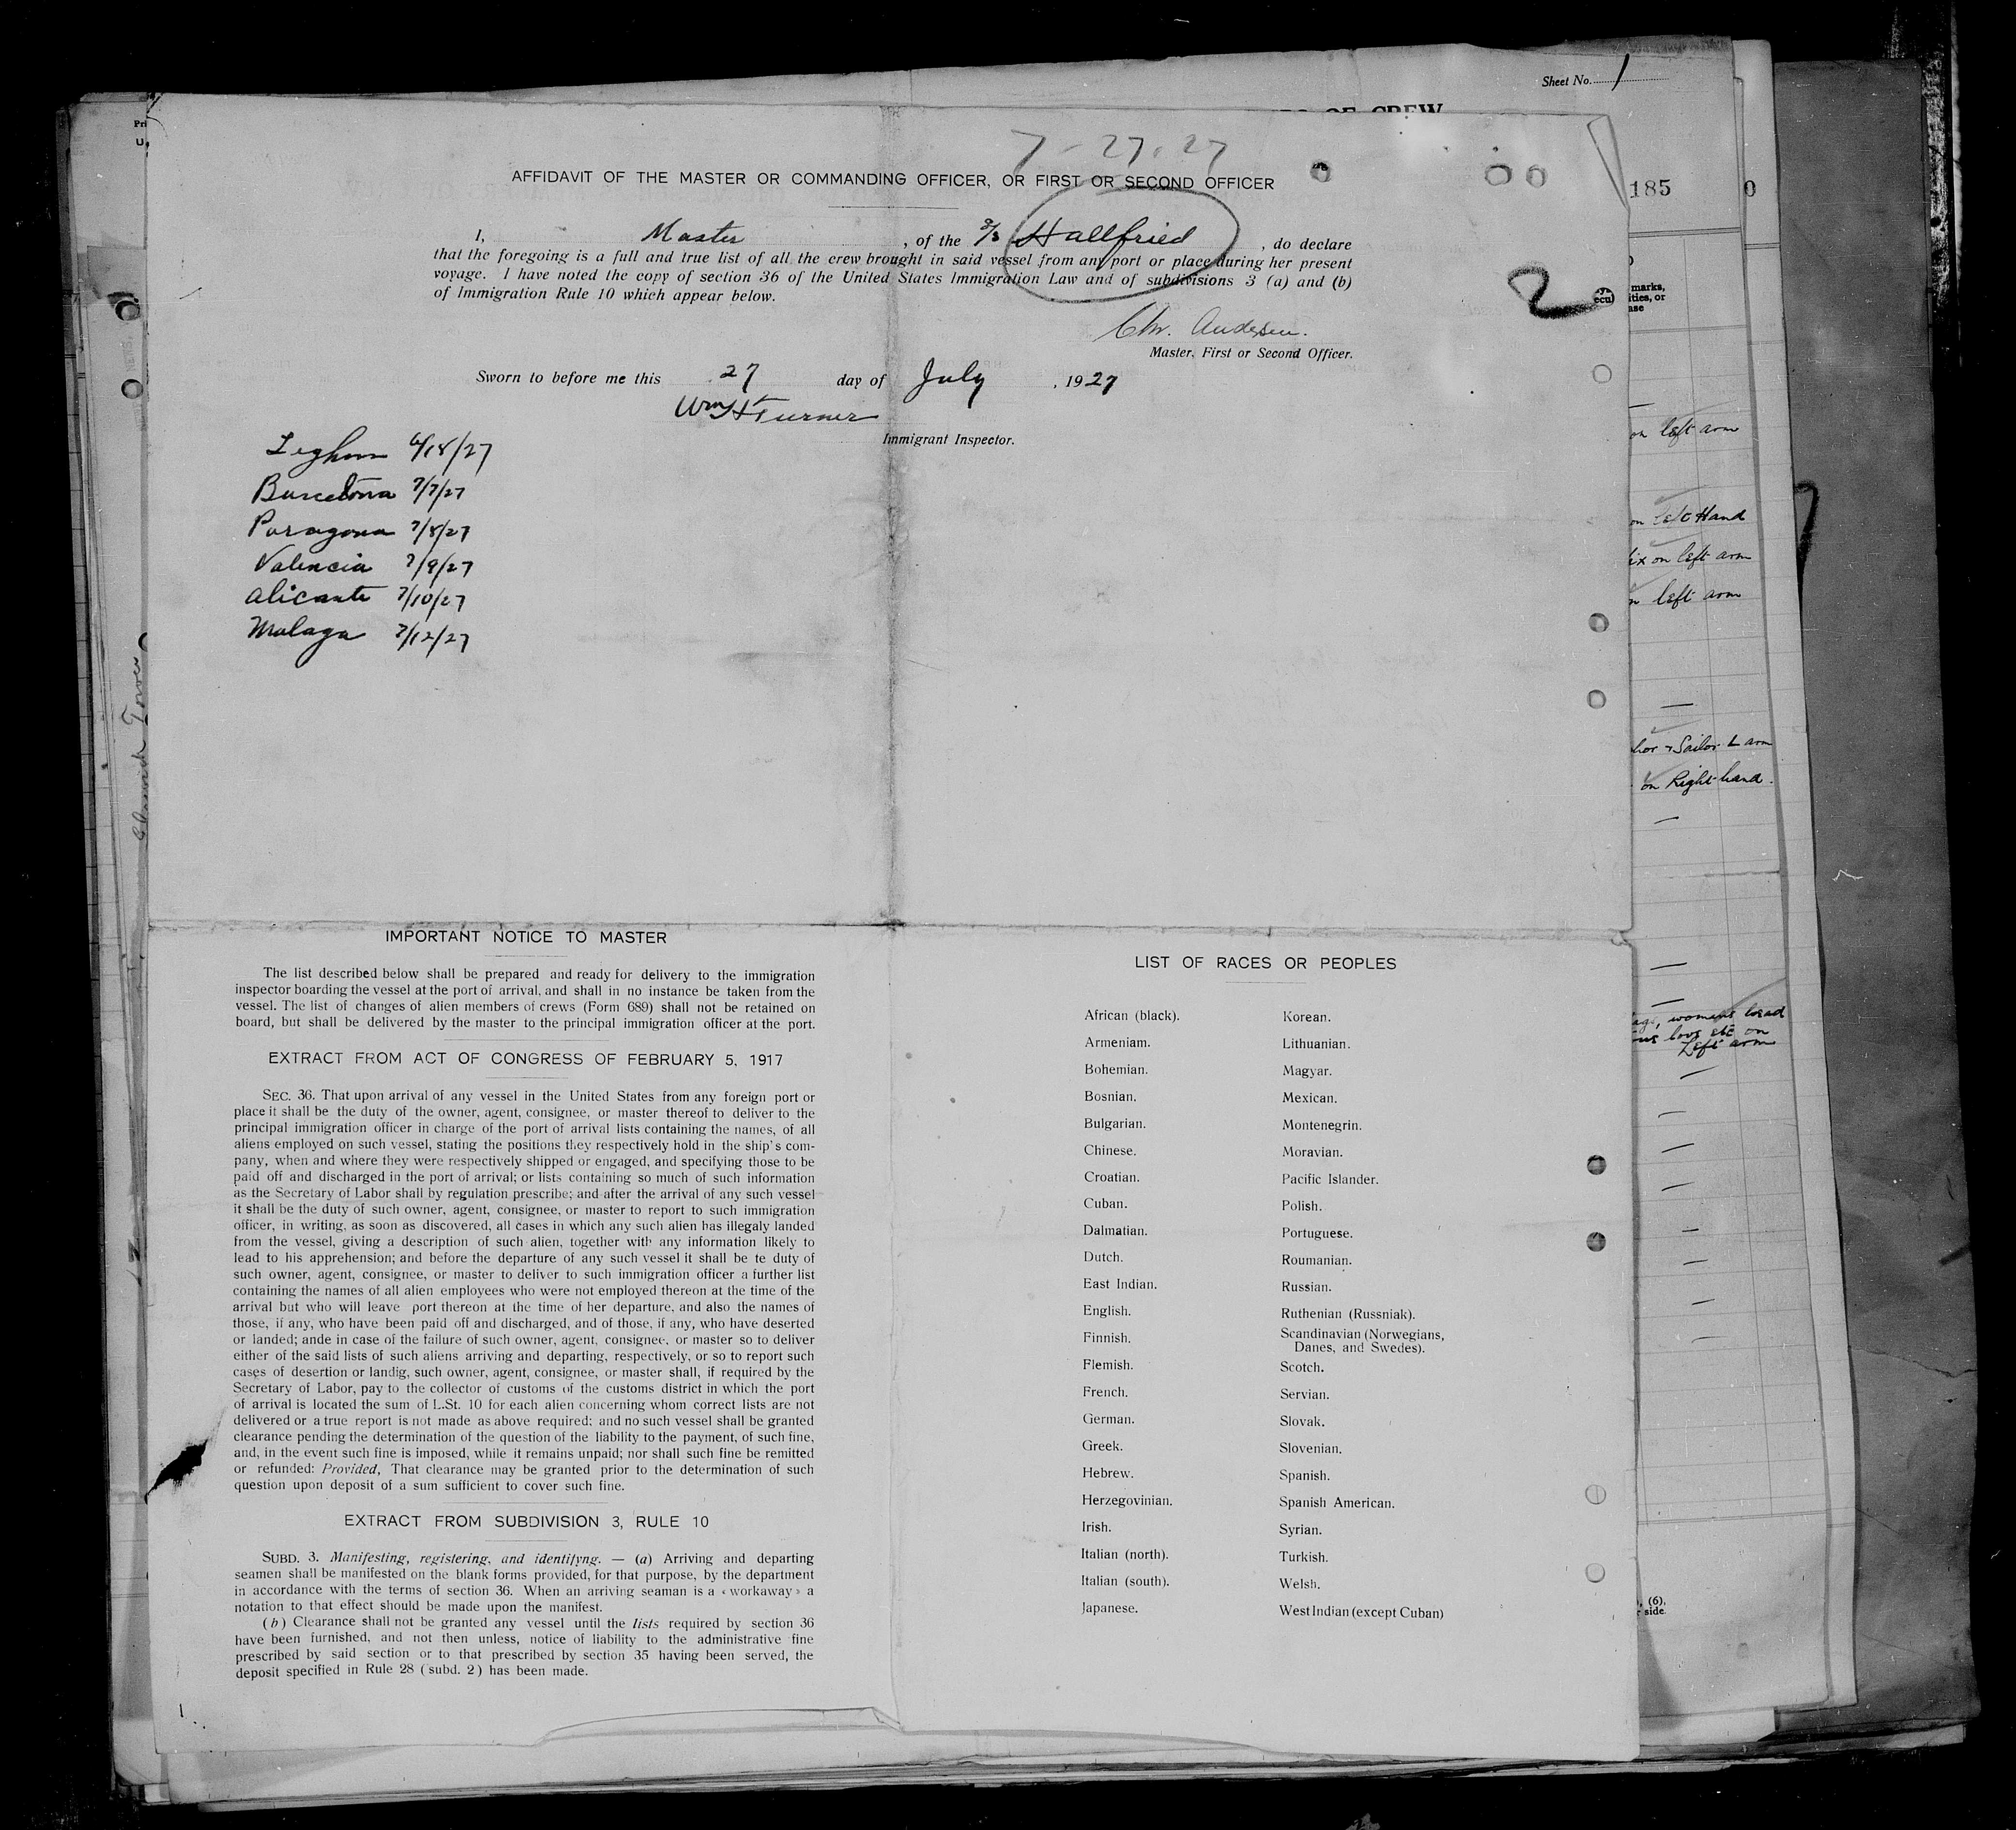 Sheet No. 1
OF CREW
7-27-27
AFFIDAVIT OF THE MASTER OR COMMANDING OFFICER, OR FIRST OR SECOND OFFICER
185
0
I, Master, of the S/S Hallfried, do declare
that the foregoing is a full and true list of all the crew brought in said vessel from any port or place during her present
voyage. I have noted the copy of section 36 of the United States Immigration Law and of subdivisions 3 (a) and (b)
of Immigration Rule 10 which appear below.
2
marks,
ities, or
ase
Chr. Andersen.
Master, First or Second Officer.
Sworn to before me this 27 day of July, 1927
Wm H Turner
Immigrant Inspector.
Leghorn 6/18/27
Barcelona 7/7/27
Paragona 7/8/27
Valencia 7/9/27
Alicante 7/10/27
Malaga 7/12/27
on left arm
on Left Hand
ix on left arm
n left arm
hor & Sailor L arm
on Right hand.
age, womans head
love etc on
Left arm
IMPORTANT NOTICE TO MASTER
The list described below shall be prepared and ready for delivery to the immigration
inspector boarding the vessel at the port of arrival, and shall in no instance be taken from the
vessel. The list of changes of alien members of crews (Form 689) shall not be retained on
board, but shall be delivered by the master to the principal immigration officer at the port.
EXTRACT FROM ACT OF CONGRESS OF FEBRUARY 5, 1917
SEC. 36. That upon arrival of any vessel in the United States from any foreign port or
place it shall be the duty of the owner, agent, consignee, or master thereof to deliver to the
principal immigration officer in charge of the port of arrival lists containing the names, of all
aliens employed on such vessel, stating the positions they respectively hold in the ship's com-
pany, when and where they were respectively shipped or engaged, and specifying those to be
paid off and discharged in the port of arrival; or lists containing so much of such information
as the Secretary of Labor shall by regulation prescribe; and after the arrival of any such vessel
it shall be the duty of such owner, agent, consignee, or master to report to such immigration
officer, in writing, as soon as discovered, all cases in which any such alien has illegaly landed
from the vessel, giving a description of such alien, together with any information likely to
lead to his apprehension; and before the departure of any such vessel it shall be te duty of
such owner, agent, consignee, or master to deliver to such immigration officer a further list
containing the names of all alien employees who were not employed thereon at the time of the
arrival but who will leave port thereon at the time of her departure, and also the names of
those, if any, who have been paid off and discharged, and of those, if any, who have deserted
or landed; ande in case of the failure of such owner, agent, consignee, or master so to deliver
either of the said lists of such aliens arriving and departing, respectively, or so to report such
cases of desertion or landig, such owner, agent, consignee, or master shall, if required by the
Secretary of Labor, pay to the collector of customs of the customs district in which the port
of arrival is located the sum of L.St. 10 for each alien concerning whom correct lists are not
delivered or a true report is not made as above required; and no such vessel shall be granted
clearance pending the determination of the question of the liability to the payment, of such fine,
and, in the event such fine is imposed, while it remains unpaid; nor shall such fine be remitted
or refunded: Provided, That clearance may be granted prior to the determination of such
question upon deposit of a sum sufficient to cover such fine.
EXTRACT FROM SUBDIVISION 3, RULE 10
SUBD. 3. Manifesting, registering, and identityng. — (a) Arriving and departing
seamen shall be manifested on the blank forms provided, for that purpose, by the department
in accordance with the terms of section 36. When an arriving seaman is a «workaway» a
notation to that effect should be made upon the manifest.
(b) Clearance shall not be granted any vessel until the lists required by section 36
have been furnished, and not then unless, notice of liability to the administrative fine
prescribed by said section or to that prescribed by section 35 having been served, the
deposit specified in Rule 28 (subd. 2) has been made.
LIST OF RACES OR PEOPLES
African (black). Korean.
Armeniam. Lithuanian.
Bohemian. Magyar.
Bosnian. Mexican.
Bulgarian. Montenegrin.
Chinese. Moravian.
Croatian. Pacific Islander.
Cuban. Polish.
Dalmatian. Portuguese.
Dutch. Roumanian.
East Indian. Russian.
English. Ruthenian (Russniak).
Finnish. Scandinavian (Norwegians,
Danes, and Swedes).
Flemish. Scotch.
French. Servian.
German. Slovak.
Greek. Slovenian.
Hebrew. Spanish.
Herzegovinian. Spanish American.
Irish. Syrian.
Italian (north). Turkish.
Italian (south). Welsh.
Japanese. West Indian (except Cuban)
(6),
side.